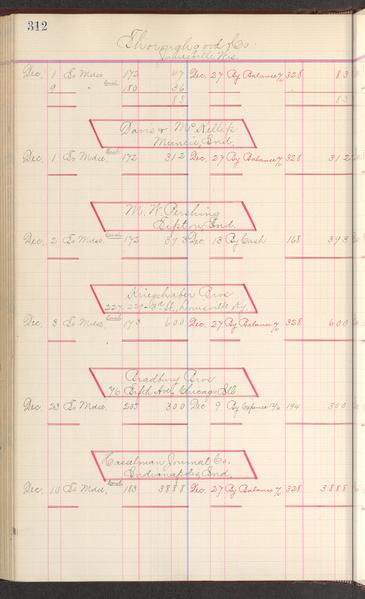 312
Thoroughgood & Co.
Janesville Wis.
Dec. 1 To Mdse. 172 47 Dec. 27 By Balance 328 83
9 " 180 36
83 83
Davis & McKellip
Muncie, Ind.
Dec. 1 To Mdse. 172 312 Dec. 27 By Balance 328 312
M. W. Pershing
Tipton, Ind.
Dec. 2 To Mdse. 172 393 Dec. 13 By Cash 168 393
Krieghaber Bros
Louisville, Ky
Dec. 3 To Mdse. 173 600 Dec. 27 By Balance 328 600
Bradbury Bros
76 Fifth Ave., Chicago Ill
Dec. 23 To Mdse. 205 300 Dec 9 By Expense 194 300
Hasselman Journal Co.
Indianapolis, Ind.
Dec. 10 To Mdse. 183 3888 Dec. 27 By Balance 328 3888